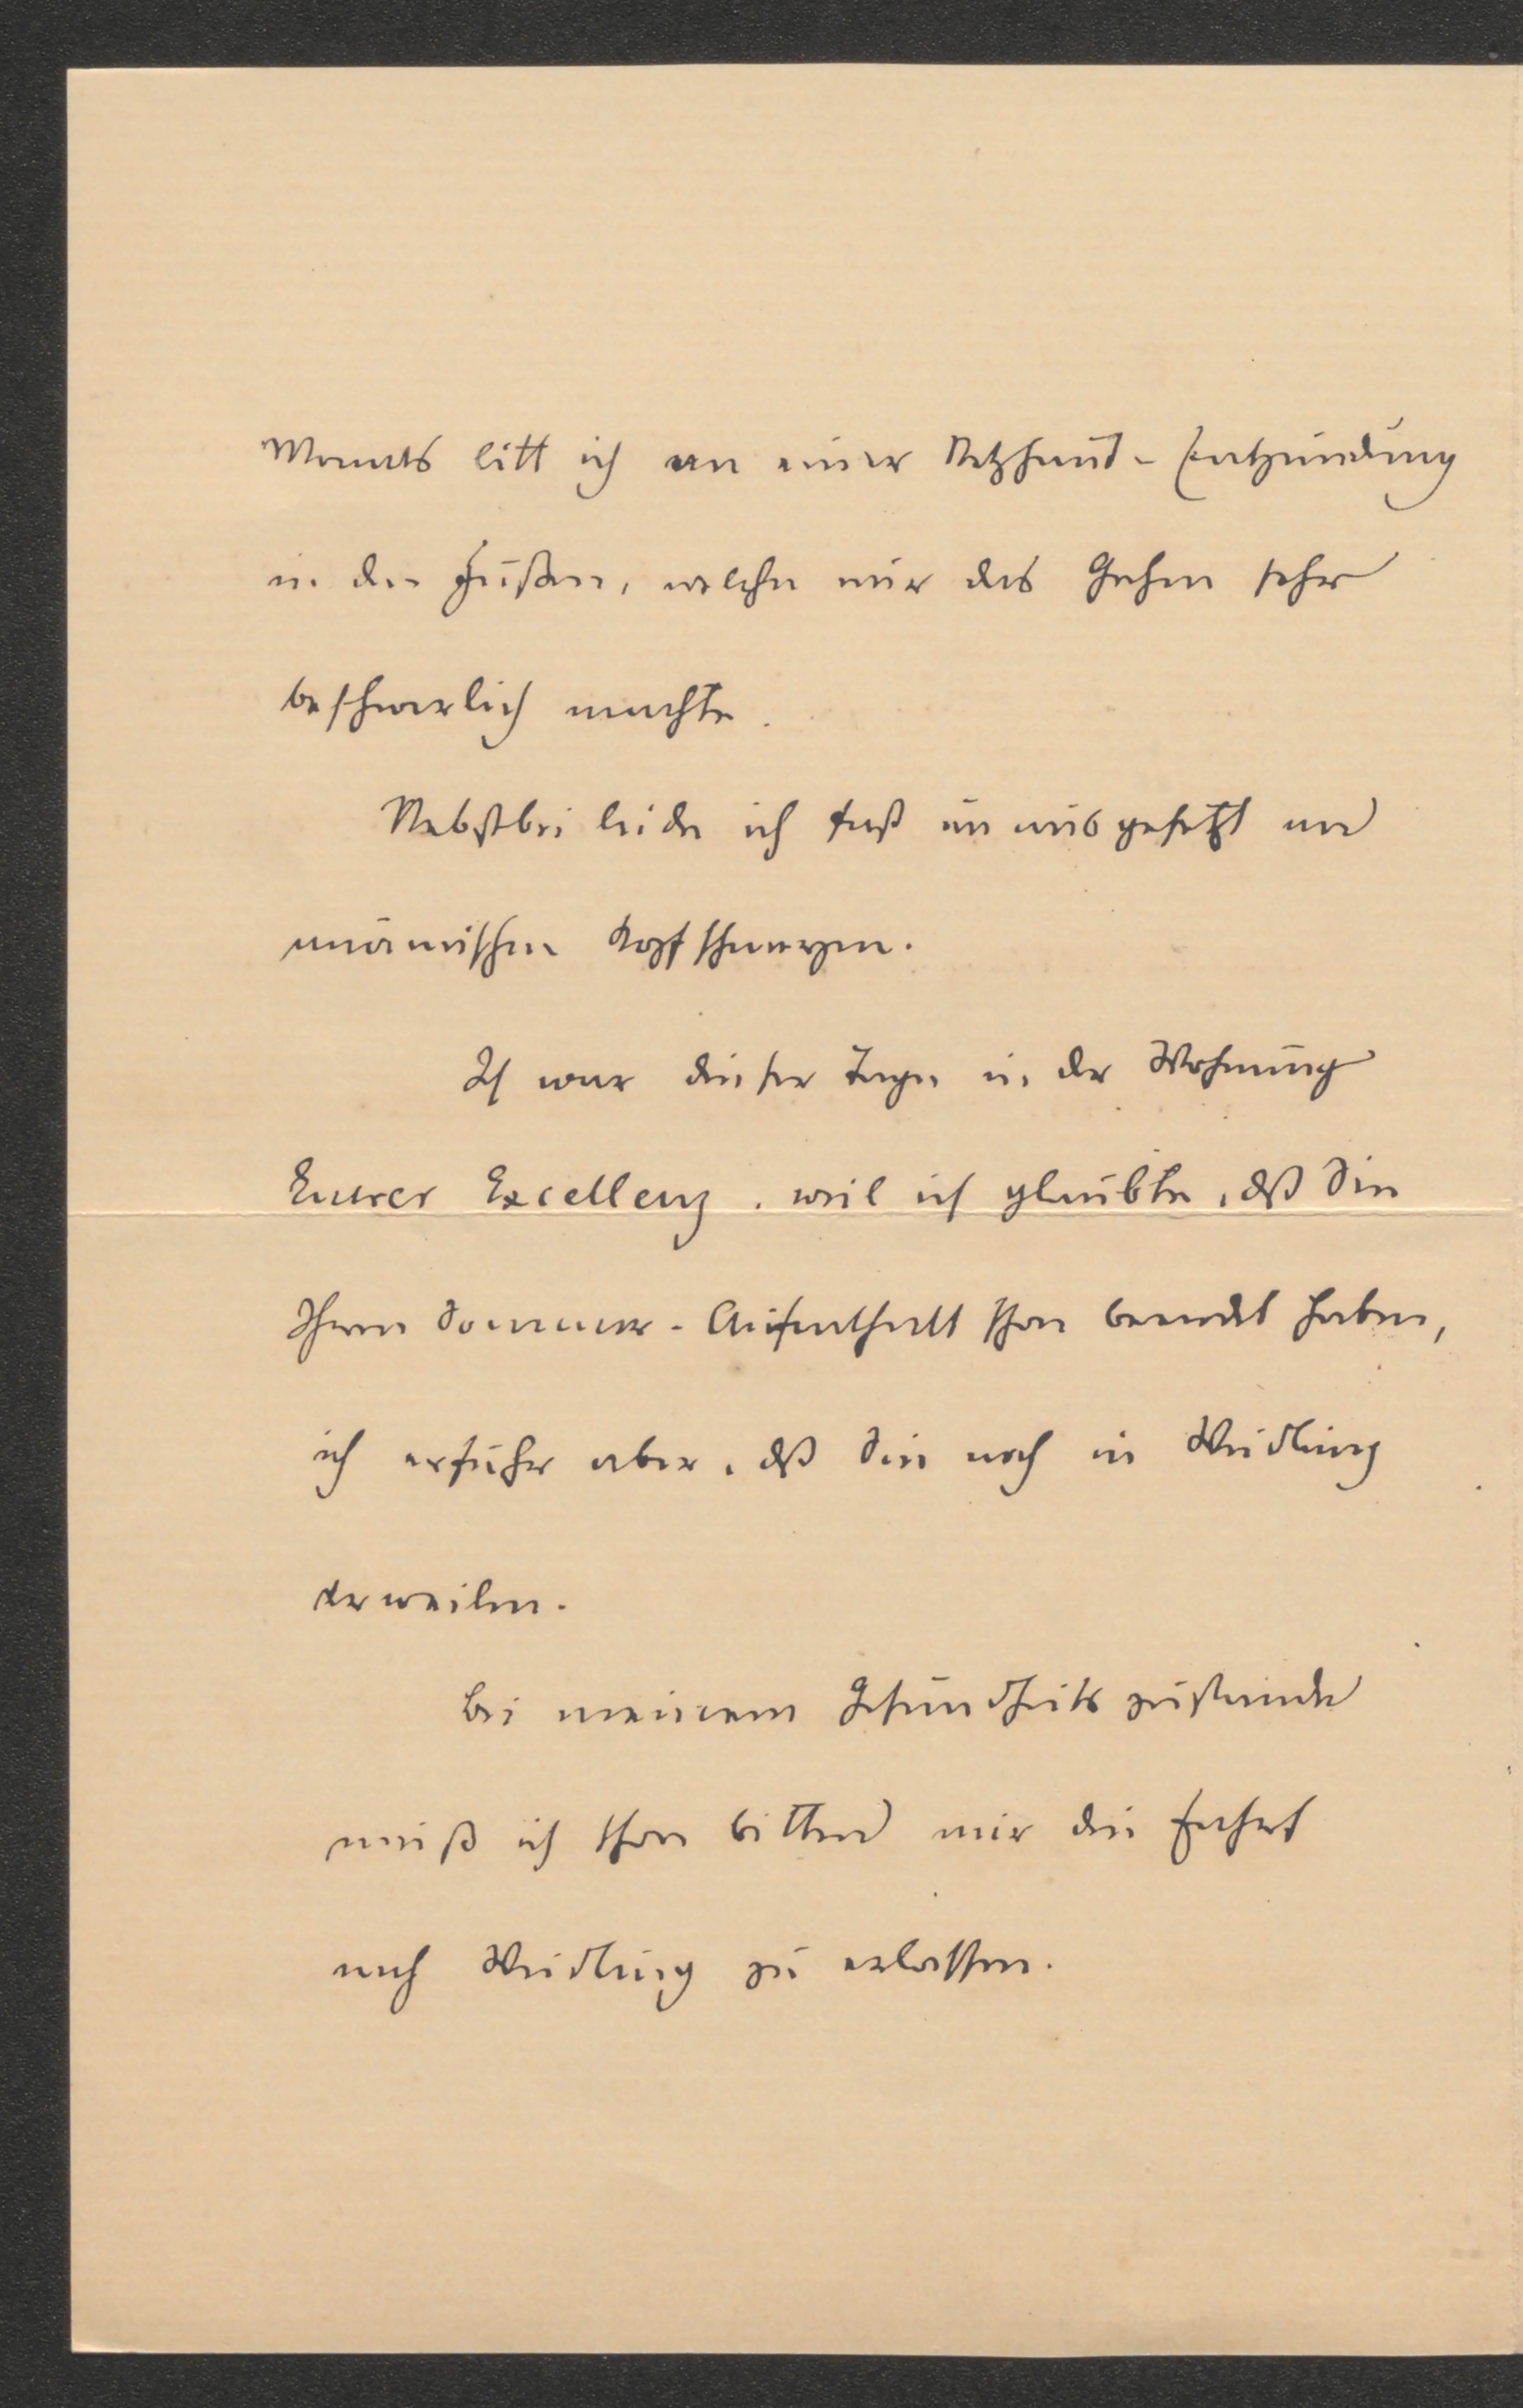 Monats litt ich an einer Netzhaut-Entzündung
in den Füßen, welche mir das Gehen sehr
beschwerlich machte.
Nebstbei leide ich fast unausgesetzt an
anämischen Kopfschmerzen.
Ich war dieser Tage in der Wohnung
Eurer Excellenz, weil ich glaubte, daß Sie
Ihren Sommer-Aufenthalt schon beendet haben,
ich erfuhr aber, daß Sie noch in Weidling
verweilen.
Bei meinem Gesundheitszustande
muß ich schon bitten mir die Fahrt
nach Weidling zu erlassen.